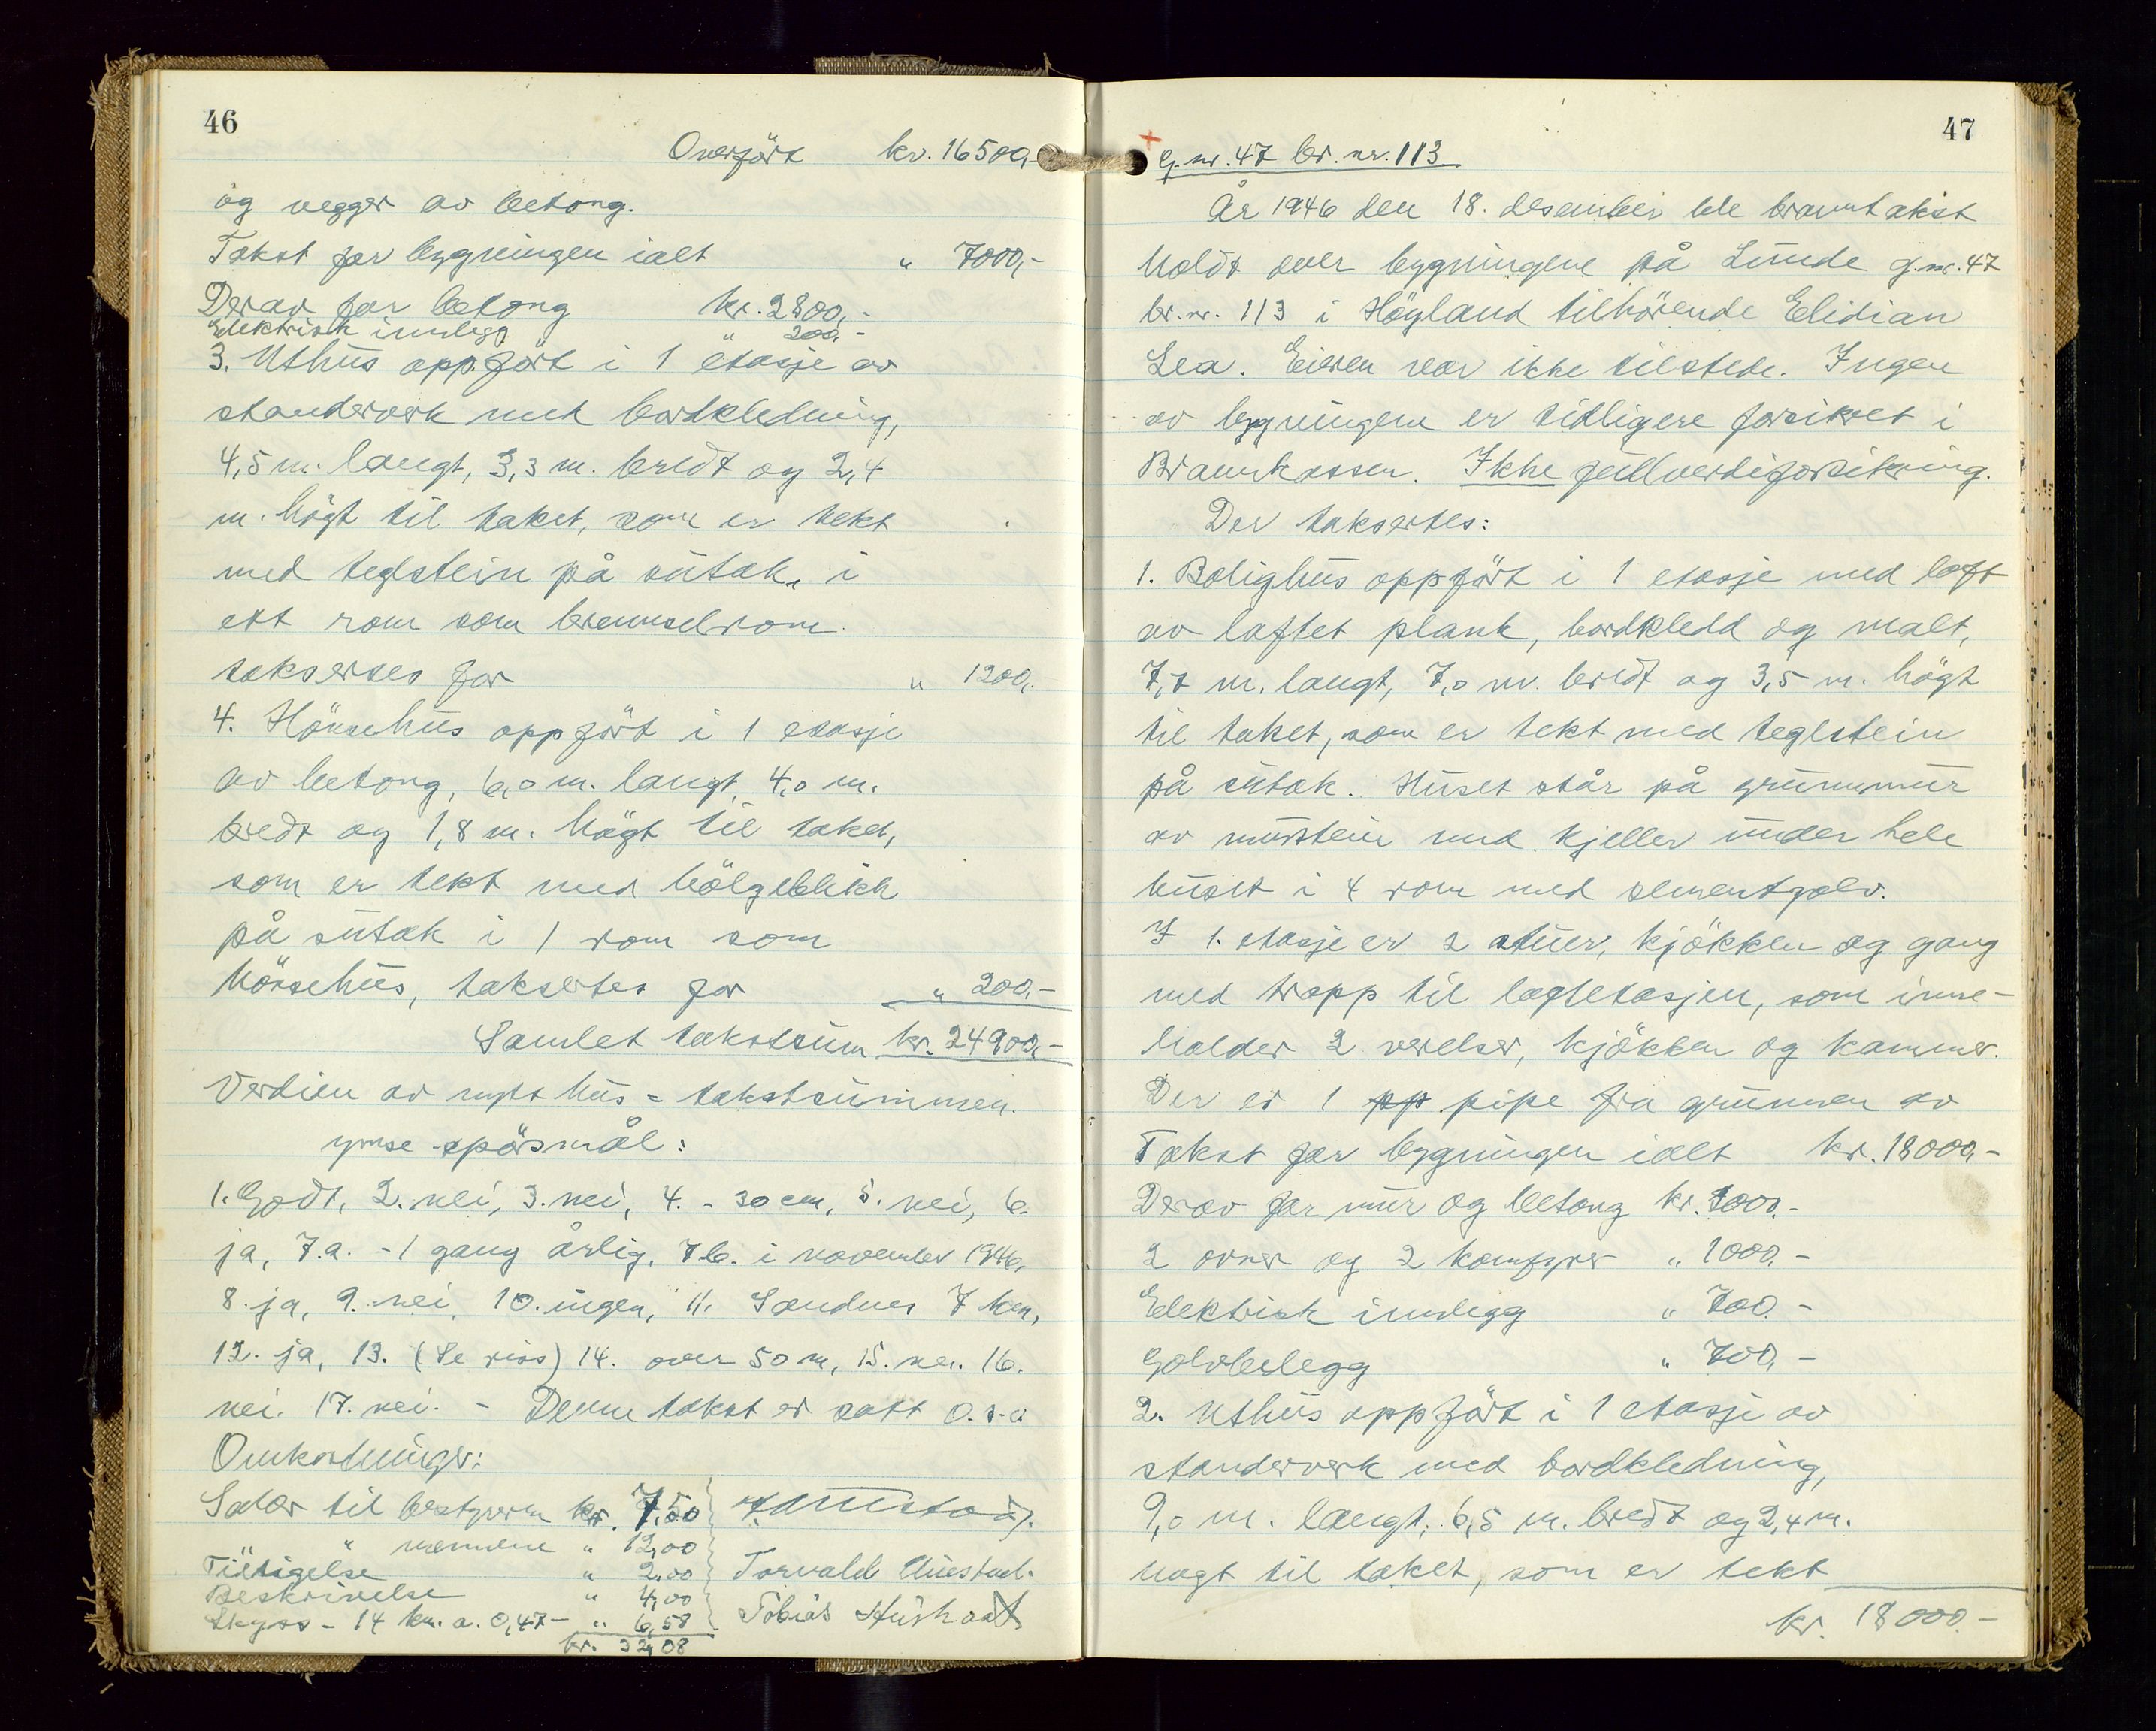 46
Overfört kr. 16500,-
og vegger av betong.
Takst for bygningen ialt " 7000,-
Derav for betong kr. 2800,-
Elektrisk innlegg " 200,-
3. Uthus oppfört i 1 etasje av
standerverk med bordkledning,
4,5 m. langt, 3,3 m. bredt og 2,4
m. högt til taket, som er tekt
med teglstein på sutak, i
ett rom som brenselrom.
takseres for " 1200,-
4. Hönsehus oppfört i 1 etasje
av betong, 6,0 m. langt, 4,0 m.
bredt og 1,8 m. högt til taket,
som er tekt med bölgeblikk
på sutak i 1 rom som
hönsehus, taksertes for " 200,-
Samlet takstsum kr. 24900,-
Verdien av nytt hus = takstsummen.
ymse spörsmål:
1. Godt, 2. nei, 3. nei, 4. - 30 cm, 5. nei, 6.
ja, 7.a. - 1 gang årlig, 7b. i november 1946,
8. ja, 9. nei, 10. ingen, 11. Sandnes 7 km,
12. ja, 13. (Se riss) 14. over 50 m, 15. nei. 16.
nei. 17. nei. - Denne takst er satt o.s.v
Omkostninger:
Salær til bestyreren kr. 7,50
" " mennene " 12,00
Tilsigelse " 2,00 Torvald Auestad.
Beskrivelse " 4,00
Skyss - 14 km. a. 0,47 - " 6,58 Tobias
kr. 32,08
47
G.nr. 47 br. nr. 113
År 1946 den 18. desember ble branntakst
holdt over bygningene på Lunde g.nr. 47
br.nr. 113 i Höyland tilhörende Elidian
Lea. Eieren var ikke tilstede. Ingen
av bygningene er tidligere forsikret i
Brannkassen. Ikke fullverdiforsikring.
Der taksertes:
1. Bolighus oppfört i 1 etasje med loft
av laftet plank, bordkledd og malt,
7,7 m. langt, 7,0 m. bredt og 3,5 m. högt
til taket, som er tekt med teglstein
på sutak. Huset står på grunnmur
av murstein med kjeller under hele
huset i 4 rom med sementgolv.
I 1. etasje er 2 stuer, kjökken og gang
med trapp til loftetasjen, som inne-
holder 2 verelser, kjökken og kammer.
Der er 1 pp pipe fra grunnen av
Takst for bygningen ialt kr. 18000,-
Derav for mur og betong kr. 7000.-
2 ovner og 2 komfyrer " 1000.-
Elektrisk innlegg " 700.-
Golvbelegg " 700,-
2. Uthus oppfört i 1 etasje av
standerverk med bordkledning,
9,0 m. langt, 6,5 m. bredt og 2,4 m.
högt til taket, som er tekt
kr. 18000.-